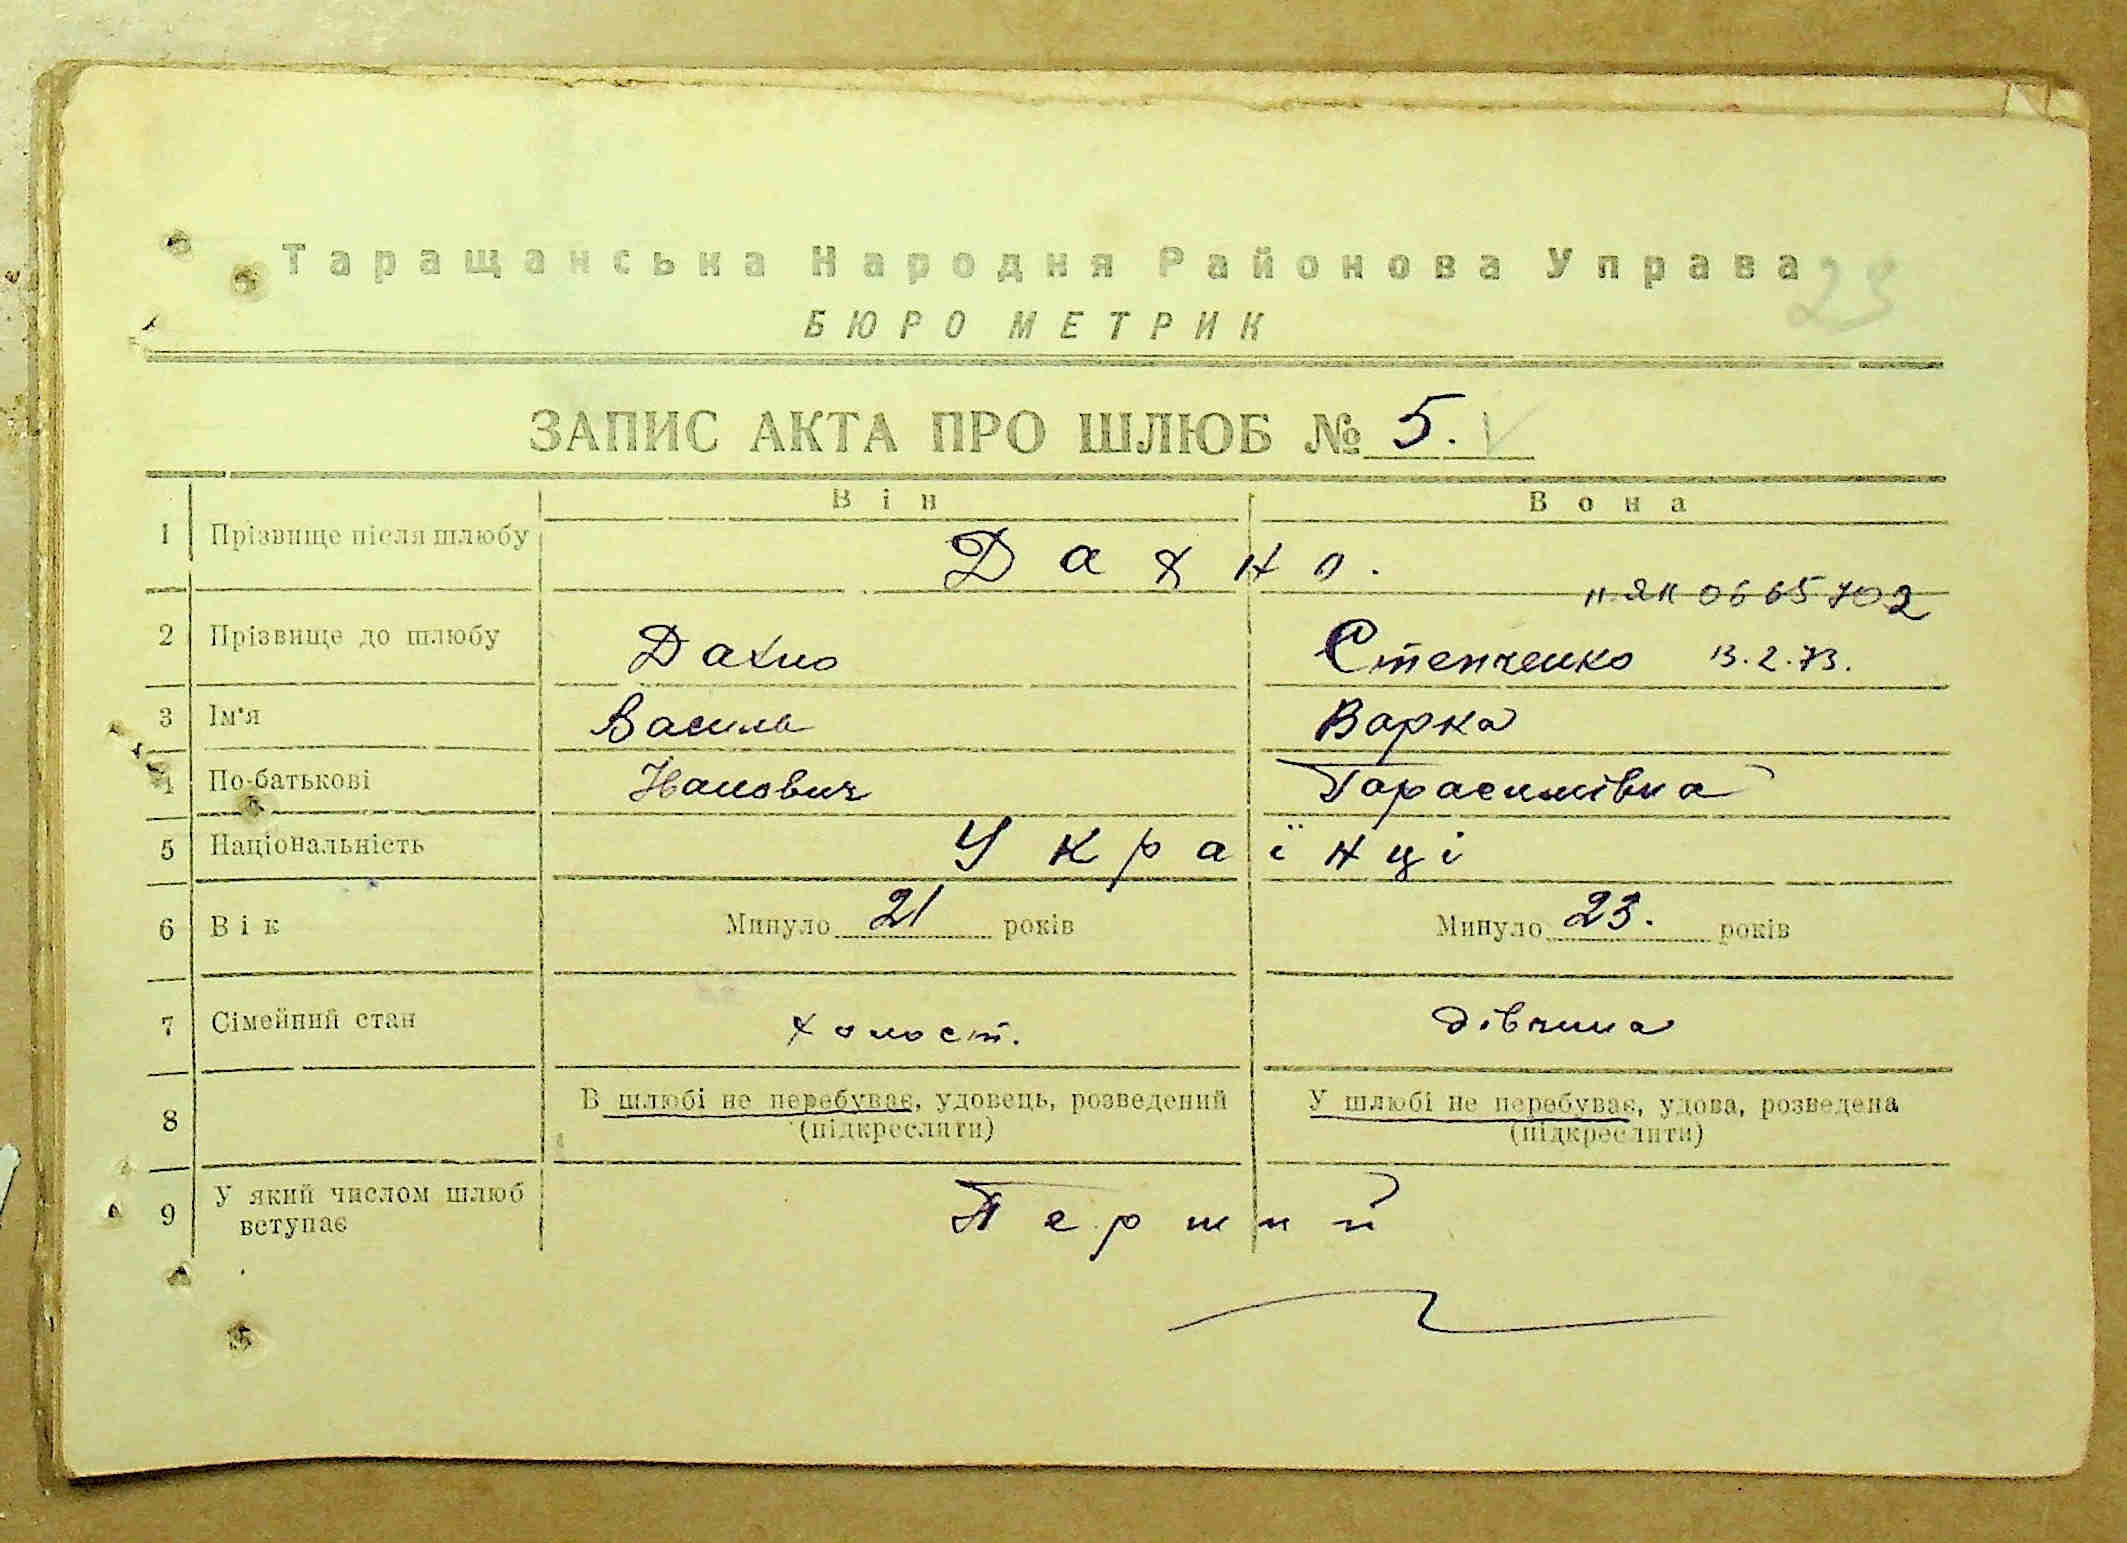 Таращанська Народня Районова Управа
23
БЮРО МЕТРИК
ЗАПИС АКТА ПРО ШЛЮБ № 5.
Він Вона
1 Прізвище після шлюбу Дахно.
ІІ ЯК 0665702
2 Прізвище до шлюбу Дахно Степченко 13.2.73.
3 Ім'я Василь Варка
4 По-батькові Іванович Гарасимівна
5 Національність Українці
6 Вік Минуло 21 років Минуло 23. років
7 Сімейний стан холост. дівчина
8 В шлюбі не перебуває, удовець, розведений У шлюбі не перебуває, удова, розведена
(підкреслити) (підкреслити)
9 У який числом шлюб вступає Перший